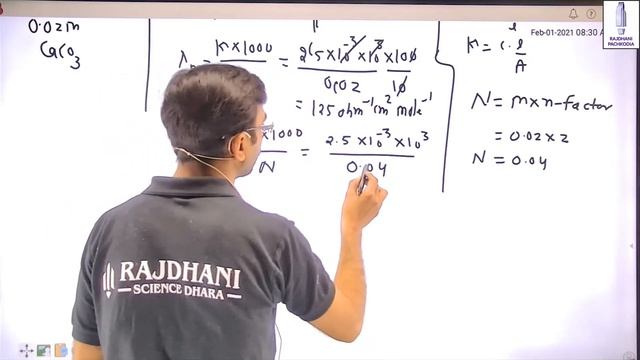 0.02m
CaCO3
λm = K×1000 = 2.5×10^-3×10^3 ×100
0.02 10
= 125 ohm^-1 cm^2 mole^-1
×1000 = 2.5×10^-3×10^3
N 0.04
K = C.l/A
N = m×n-factor
= 0.02×2
N = 0.04
Feb-01-2021 08:30 A
RAJDHANI
PACHKODIA
RAJDHANI
SCIENCE DHARA